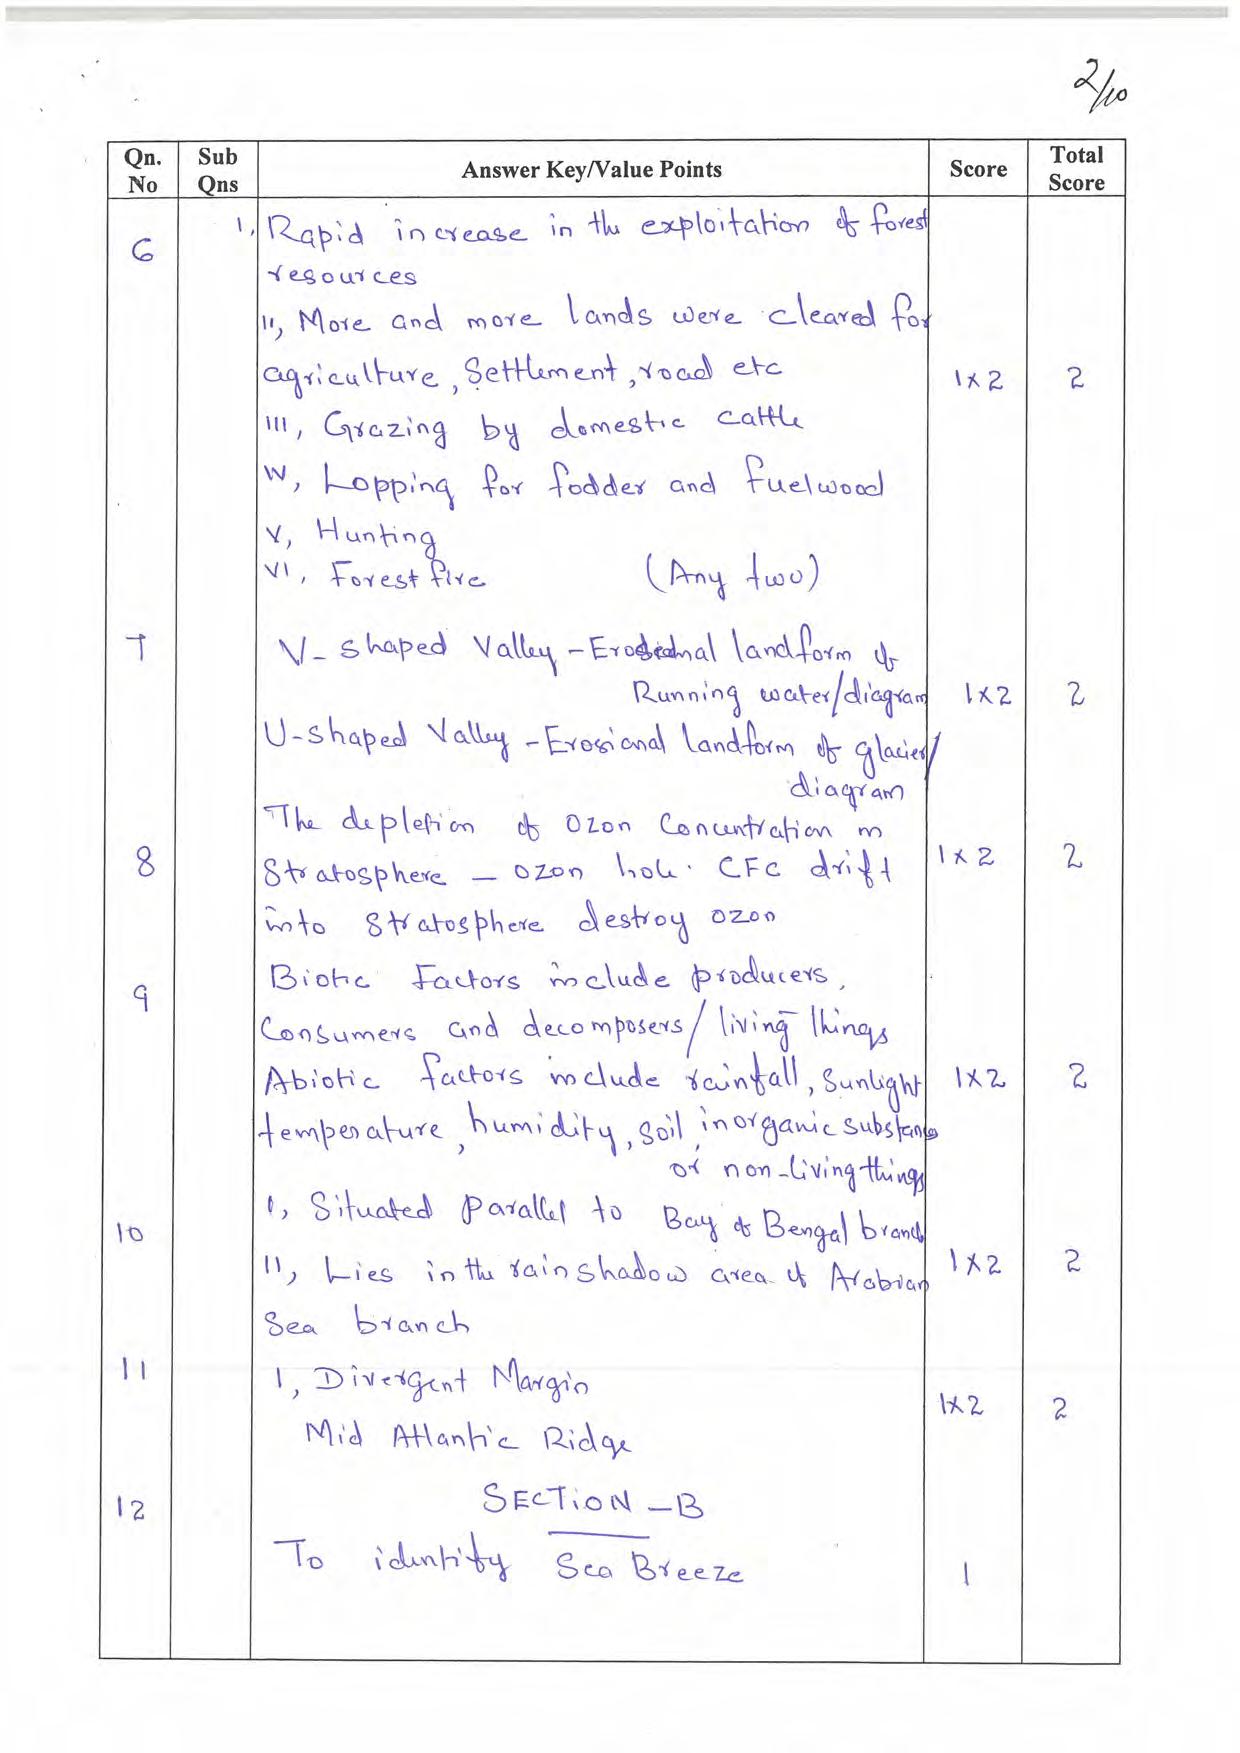 2/10
Qn. No Sub Qns Answer Key/Value Points Score Total Score
6 I, Rapid increase in the exploitation of forest
resources
II, More and more lands were cleared for
agriculture, Settlement, road etc 1x2 2
III, Grazing by domestic cattle
IV, Lopping for fodder and fuelwood
V, Hunting
VI, Forest fire (Any two)
7 V-shaped Valley - Erosional landform of
Running water/diagram 1x2 2
U-shaped Valley - Erosional landform of glacier/
diagram
The depletion of Ozon Concentration in
8 Stratosphere - ozon hole. CFC drift 1x2 2
into Stratosphere destroy ozon
Biotic Factors include producers,
9 Consumers and decomposers/living things
Abiotic factors include rainfall, Sunlight 1x2 2
temperature, humidity, soil, inorganic substances
or non-living things
10 I, Situated parallel to Bay of Bengal branch
II, Lies in the rain shadow area of Arabian 1x2 2
Sea branch
11 I, Divergent Margin
Mid Atlantic Ridge 1x2 2
12 SECTION - B
To identify Sea Breeze 1